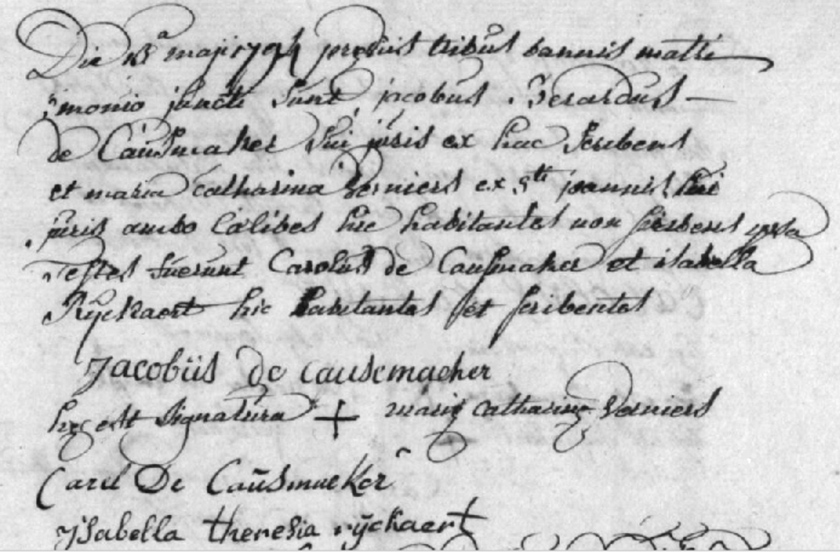 Die 18a maji 1794 prævis tribus bannis matri
imonio juncti sunt jacobus Berardus
de Causmaker sui juris ex hac scribens
et maria catharina Verniers ex sti joannis sui
juris ambo cælibes hic habitantes non scribens ipsa
Testes fuerunt Carolus de Causmaker et isabella
Ryckaert hic habitantes et scribentes
Jacobüs de causemacher
hæc est signatura + mariæ catharinæ Verniers
Carel De Causmaeker
ysabella theresia ryckaert